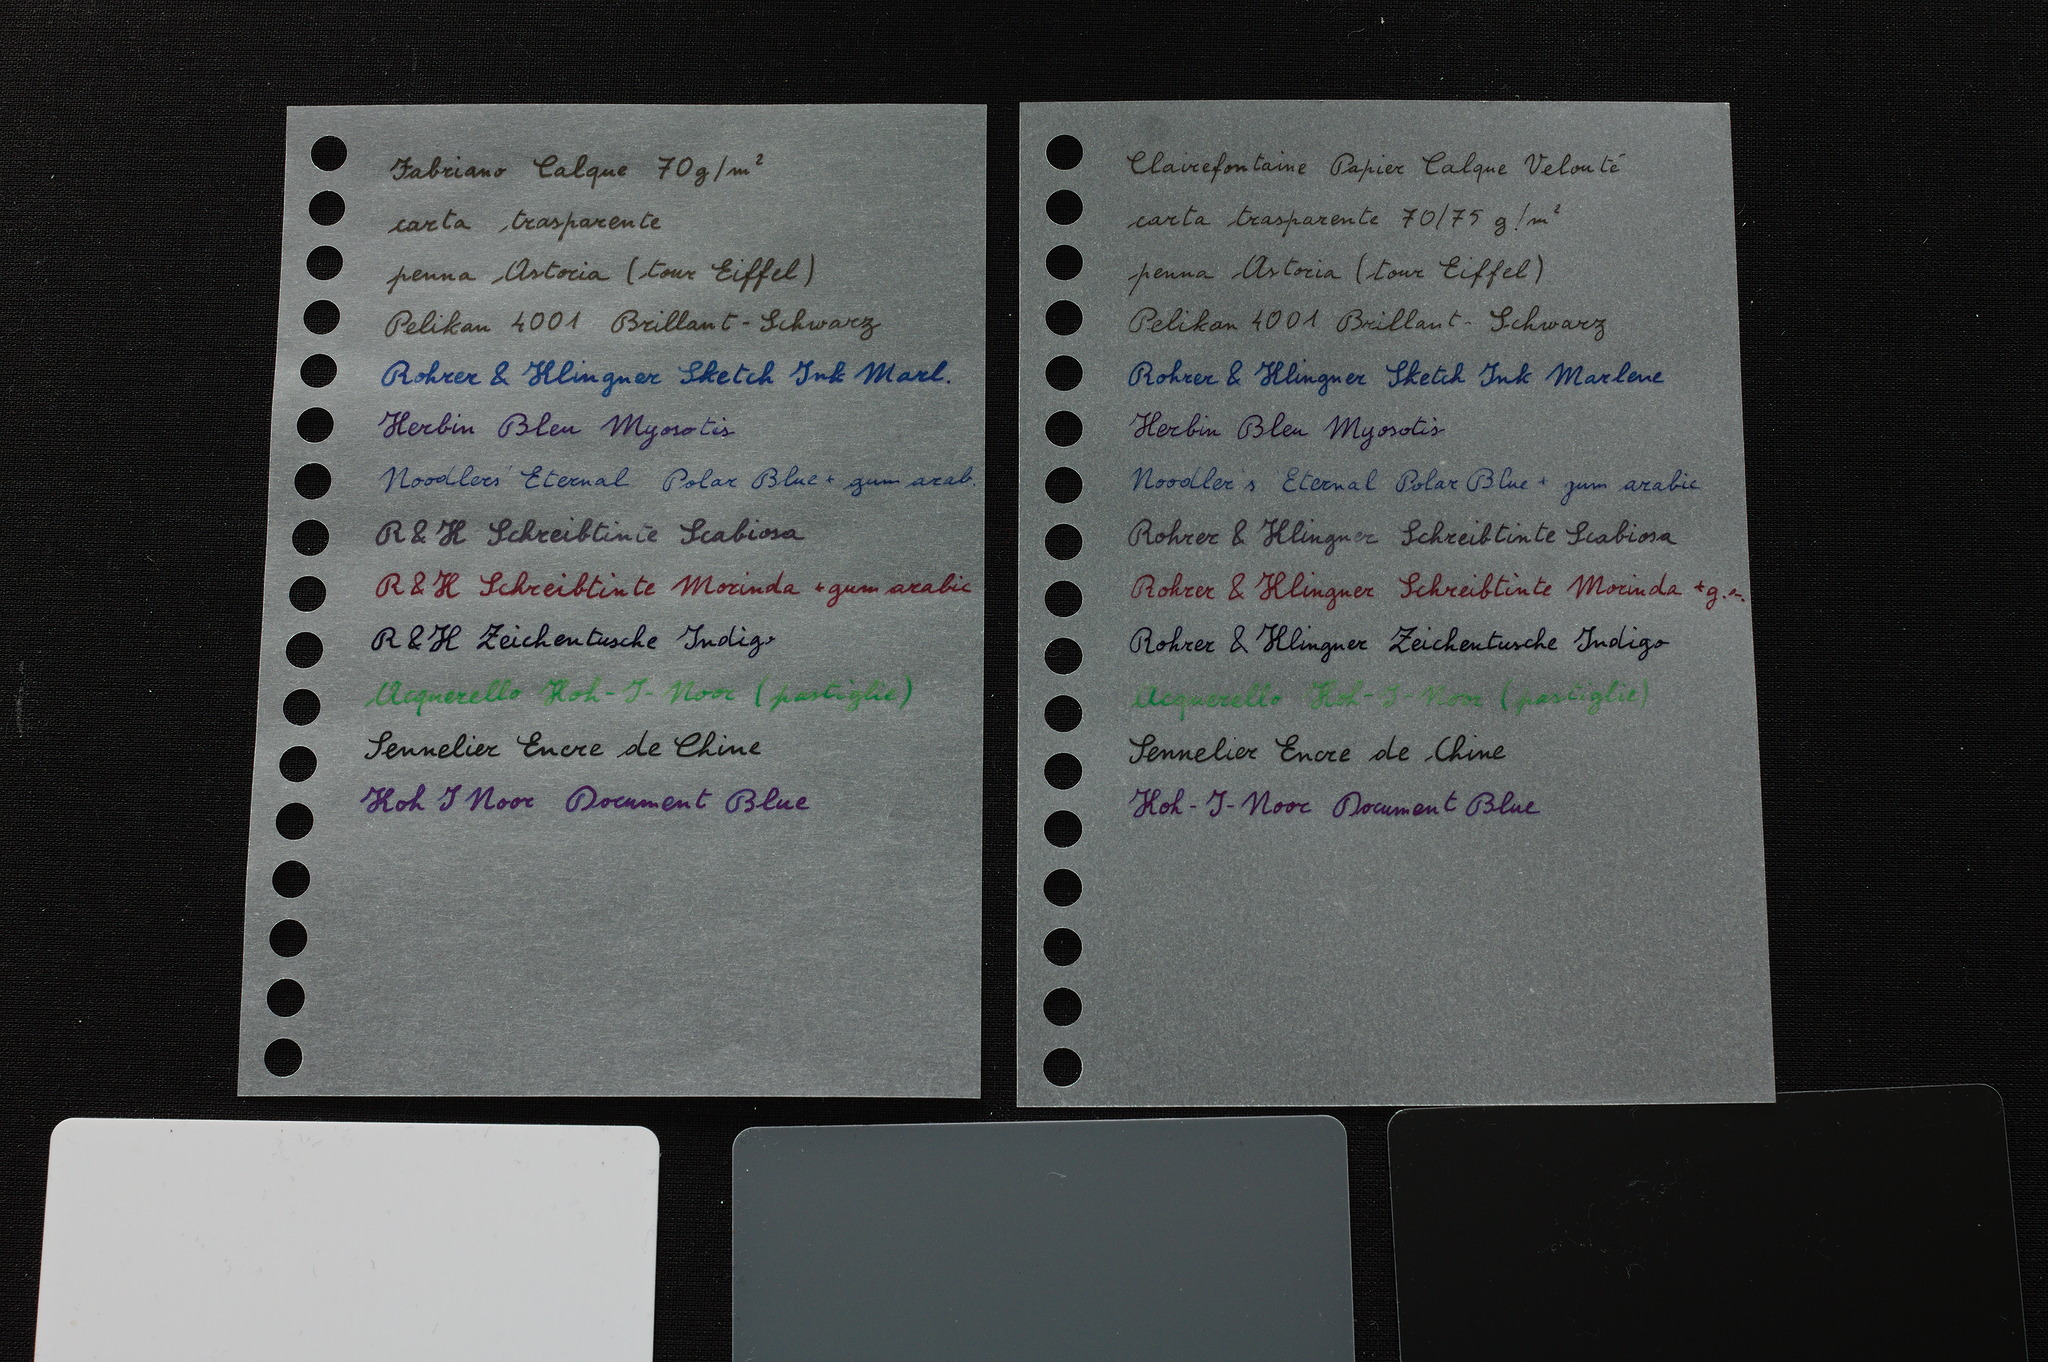 Fabriano Calque 70g/m²
carta trasparente
penna Astoria (tour Eiffel)
Pelikan 4001 Brillant-Schwarz
Rohrer & Klingner Sketch Ink Marl.
Herbin Bleu Myosotis
Noodlers' Eternal Polar Blue + gum arab.
R&K Schreibtinte Scabiosa
R&K Schreibtinte Morinda +gum arabic
R&K Zeichentusche Indigo
Acquerello Koh-I-Noor (pastiglie)
Sennelier Encre de Chine
Koh I Noor Document Blue
Clairefontaine Papier Calque Velouté
carta trasparente 70/75 g/m²
penna Astoria (tour Eiffel)
Pelikan 4001 Brillant-Schwarz
Rohrer & Klingner Sketch Ink Marlene
Herbin Bleu Myosotis
Noodler's Eternal Polar Blue + gum arabic
Rohrer & Klingner Schreibtinte Scabiosa
Rohrer & Klingner Schreibtinte Morinda +g.a.
Rohrer & Klingner Zeichentusche Indigo
Acquerello Koh-I-Noor (pastiglie)
Sennelier Encre de Chine
Koh-I-Noor Document Blue